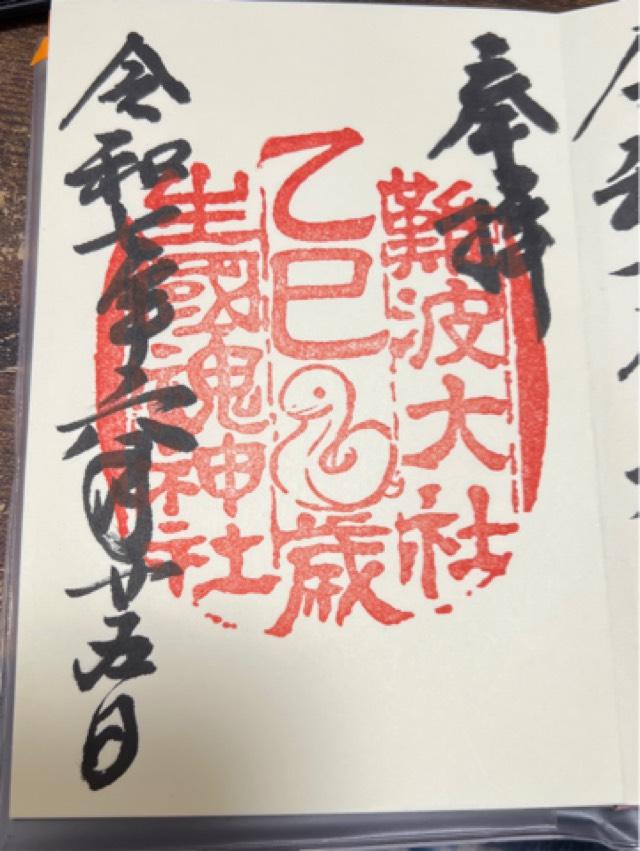 奉拝
難波大社
乙巳歳
生國魂神社
令和七年六月廿五日